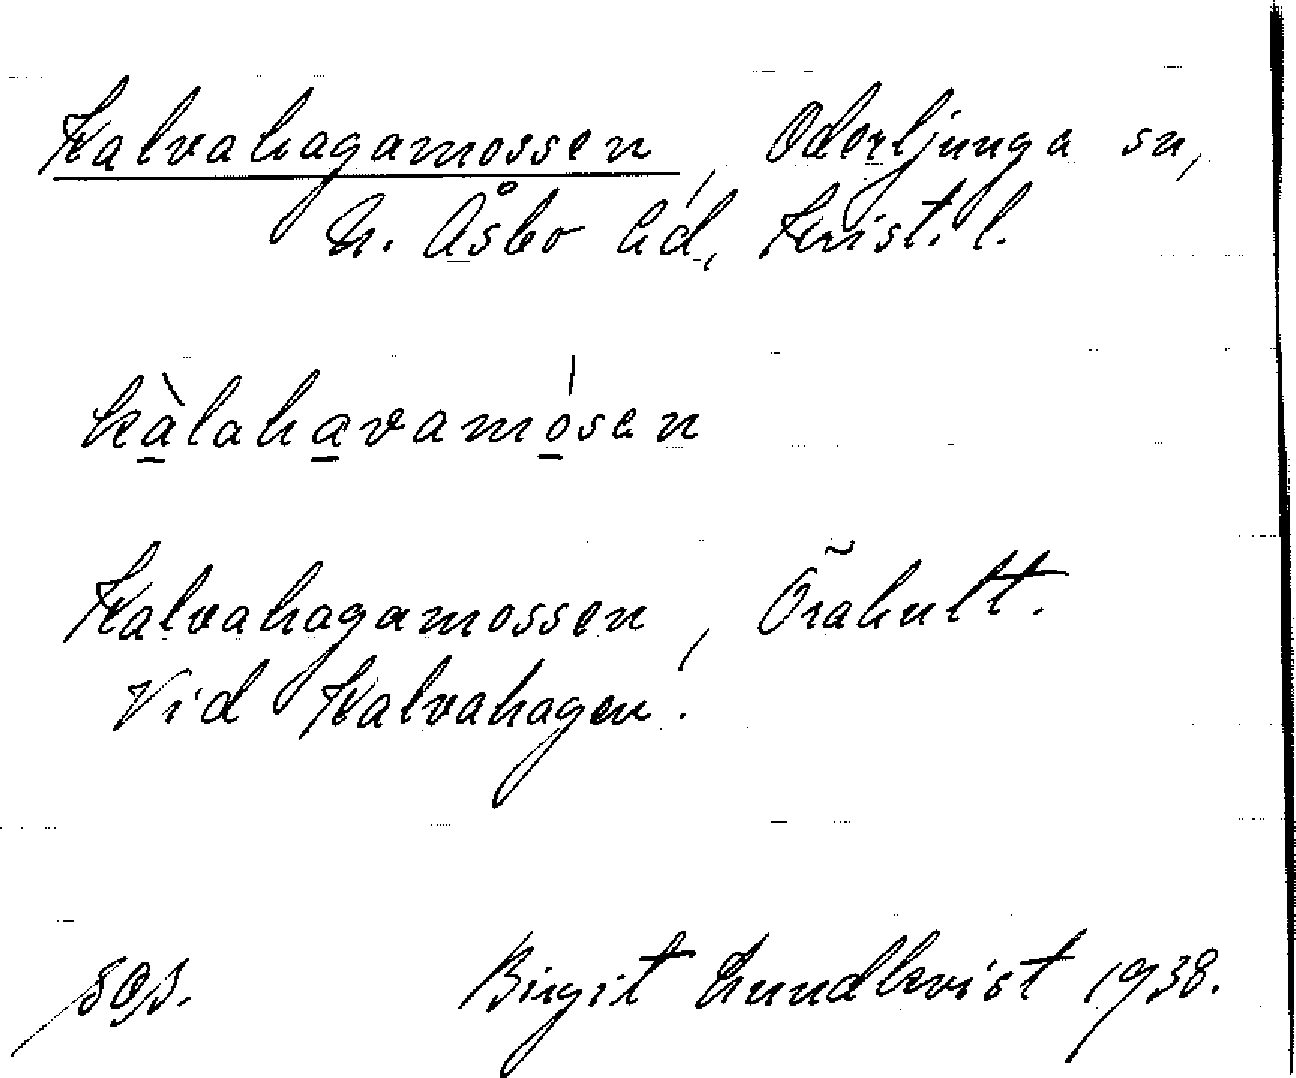 Kalvahagamossen, Oderljunga sn,
N. Åsbo hd., Krist. l.
kàlahavamósen
Kalvahagamossen, Örahult.
Vid Kalvahagen.
Birgit Lundkvist 1938.